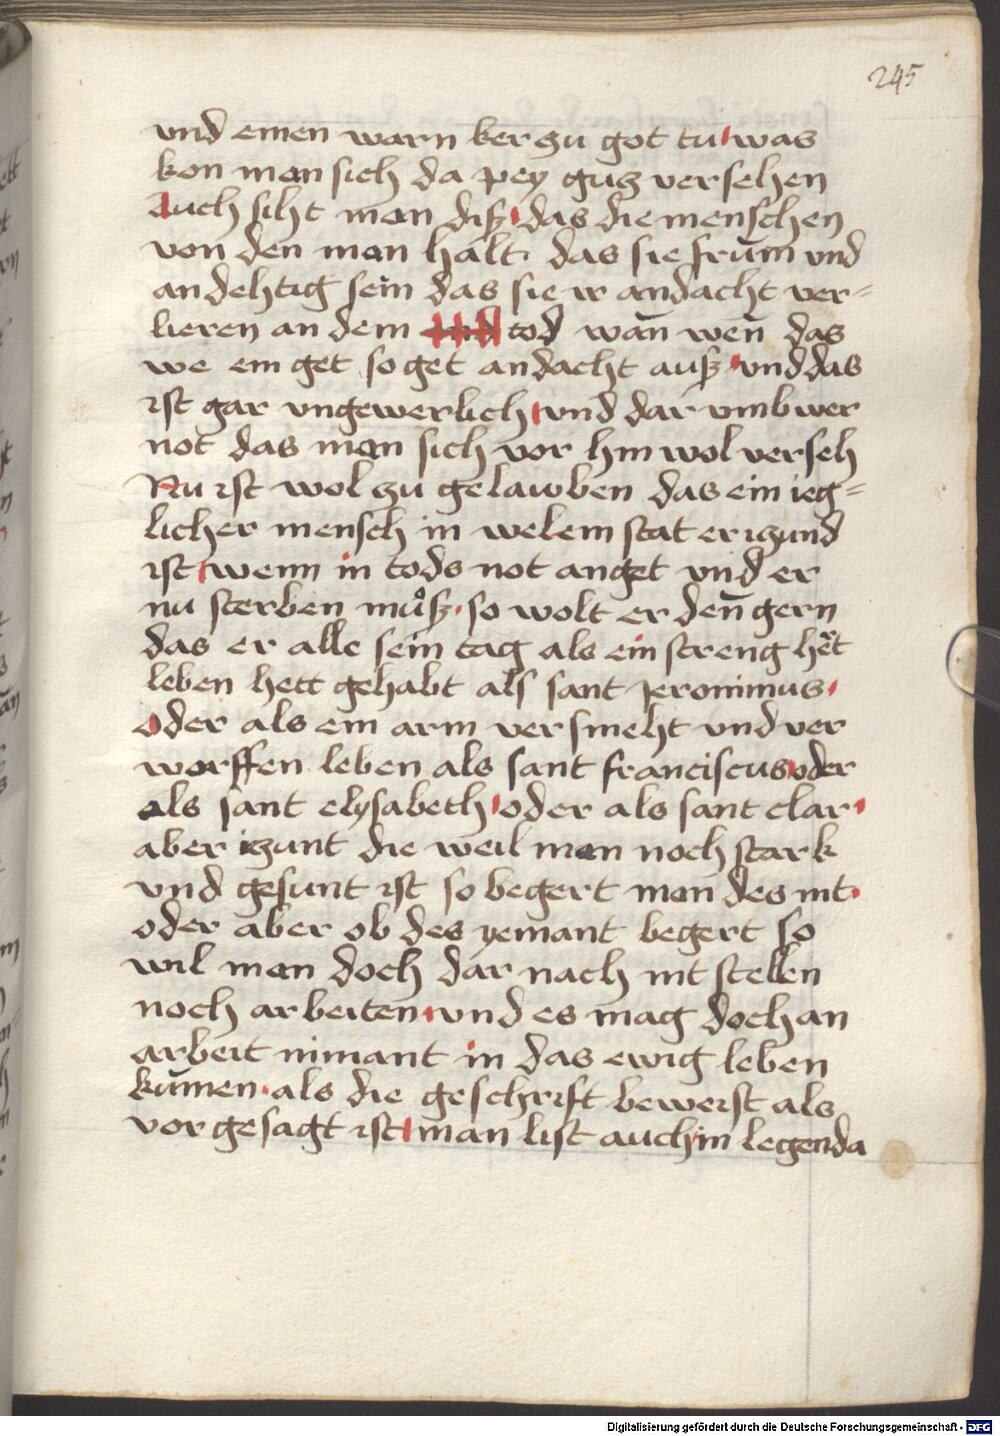 245
vnd einen warn ker zu got tu was
kon man sich da pey gucz versehen
Auch siht man diß das die menschen
von den man halt das sie frūm vnd
andehtig sein das sie ir andacht ver=
lieren an dem tod wan̄ wen̄ das
we ein get so get andacht auß vnd das
ist gar vngewerlich vnd dar vmb wer
not das man sich vor hin wol verseh
Nu ist wol zu gelawben das ein ieg=
licher mensch in welem stat er iczund
ist wenn in tods not anget vnd er
nu sterben muͦß so wolt er den̄ gern
das er alle sein tag als ein streng het
leben hett gehabt als sant Jeronimus
oder als ein arm versmeht vnd ver
worffen leben als sant franciscus oder
als sant elysabeth oder als sant clar
aber iczunt die weil man noch stark
vnd gesunt ist so begert man des nit
oder aber ob des yemant begert so
wil man doch dar nach nit stellen
noch arbeiten vnd es mag doch an
arbeit nimant in das ewig leben
kūmen als die geschrift beweist als
vor gesagt ist man list auch in legenda
Digitalisierung gefördert durch die Deutsche Forschungsgemeinschaft - DFG